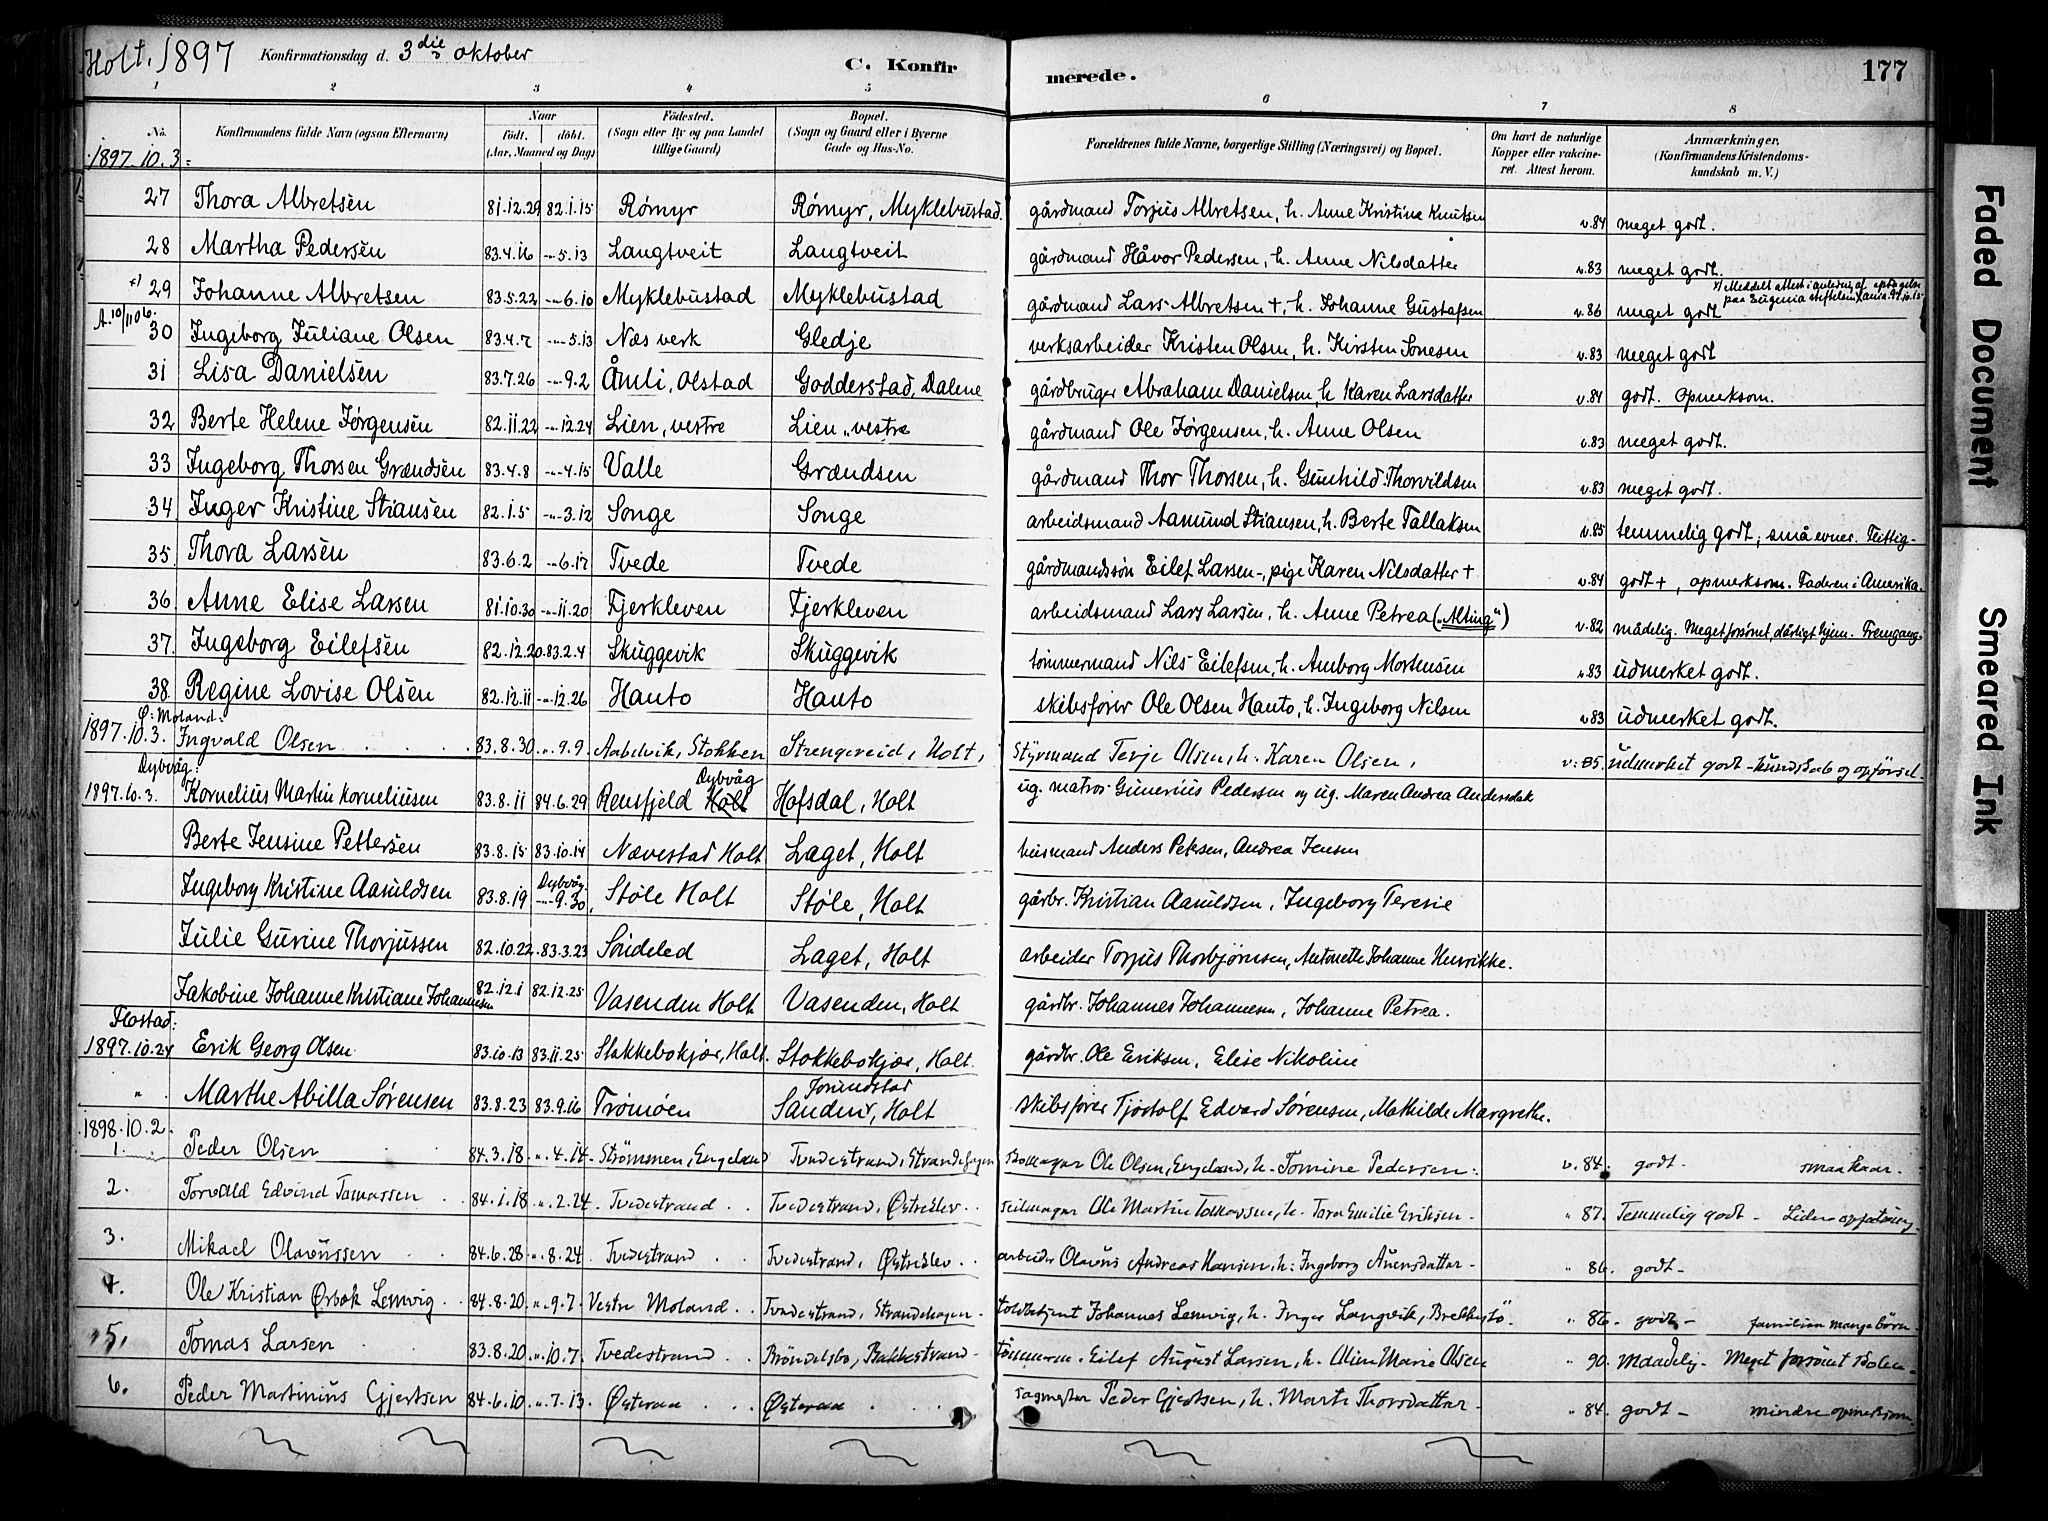 Holt. 1897 Konfirmationsdag d. 3die oktober C. Konfirmerede. 177
1 2 3 4 5 6 7 8
No. Konfirmandens fulde Navn (ogsaa Efternavn) Naar født. døbt. (Aar, Maaned og Dag) Fødested. (Sogn eller By og paa Landet tillige Gaard) Bopæl. (Sogn og Gaard eller i Byerne Gade og Hus-No. Forældrenes fulde Navne, borgerlige Stilling (Næringsvei) og Bopæl. Om havt de naturlige Kopper eller vakcineret. Attest herom. Anmærkninger. (Konfirmandens Kristendomskundskab m. V.)
1897.10.3:
27 Thora Albretsen 81.12.29 82.1.15 Rømyr Rømyr, Myklebustad. gårdmand Torjus Albretsen, h. Anne Kristina Knutsen v.84 meget godt.
28 Martha Pedersen 83.4.16 -"-5.13 Langtveit Langtveit gårdmand Håvor Pedersen, h. Anne Nilsdatter v.83 meget godt.
x) 29 Johanne Albretsen 83.5.22 -"-6.10 Myklebustad Myklebustad gårdmand Lars Albretsen +, h. Johanne Gustafsen v.86 meget godt x) Meddelt attest i anledning af optagelse paa Eugenia stiftelse
A.10/11 06. 30 Ingeborg Juliane Olsen 83.4.7 -"-5.13 Næs verk Gledje verksarbeider Kristen Olsen, h. Kirsten Tonesen v.83 meget godt
31 Lisa Danielsen 83.7.26 -"-9.2 Åmli, Olstad Godderstad, Dalene gårdbruger Abraham Danielsen, h Karen Larsdatter v.84 godt. opmerksom.
32 Berte Helene Jørgensen 82.11.22 -"-12.24 Lien, vestre Lien, vestre gårdmand Ole Jørgensen, h. Anne Olsen v.83 meget godt.
33 Ingeborg Thorsen Grændsen 83.4.8 -"-4.15 Valle Grændsen gårdmand Thor Thorsen, h. Gunhild Thorvildsen v.83 meget godt.
34 Inger Kristine Stiansen 82.1.5 -"-3.12 Songe Songe arbeidsmand Aamund Stiansen, h. Berte Tallaksen v.85 temmelig godt; små evner. Flittig-
35. Thora Larsen 83.6.2 -"-6.17 Tvede Tvede gårdmandssøn Eilef Larsen-, pige Karen Nilsdatter + v.84 godt +, opmerksom. Faderen i Amerika.
36 Anne Elise Larsen 81.10.30 -"-11.20 Fjerkleven Fjerkleven arbeidsmand Lars Larsen, h. Anne Petrea ("Alting") v.82 mådelig. Meget forsømt, dårligt hjem. Fremgang.
37. Ingeborg Eilefsen 82.12.20. 83.2.4 Skuggevik Skuggevik tømmermand Nils Eilefsen, h. Amborg Mortensen v.83 udmerket godt.
38. Regine Lovise Olsen 82.12.11 -"-12.26 Hanto Hanto skibsfører Ole Olsen Hanto, h. Ingeborg Nilsen v.83 udmerket godt.
Ø: Moland:
1897.10.3. Ingvald Olsen 83.8.30 "-9.9. Aabelvik, Stokken Strengereid, Holt, Styrmand Terje Olsen, h. Karen Olsen, v:85. udmerket godt - kundskab og opførsel-
Dybvåg:
1897.10.3. Kornelius Martin Korneliusen 83.8.11 84.6.29 Rensfjeld Dybvåg Hofsdal, Holt ug. matros Gunerius Pedersen og ug. Maren Andrea Andersdat
Berte Jensine Pettersen 83.8.15 83.10.14 Nævestad Holt Laget, Holt husmand Anders Petersen, Andrea Jensen
Ingeborg Kristine Aanildsen 83.8.19 Dybvåg. -"-9.30 Støle Holt Støle, Holt gårbr. Kristian Aanildsen, Ingeborg Teresie
Julie Gurine Thorjussen 82.10.22 83.3.23 Søndeled Laget, Holt arbeider Torjus Thorbjørnsen, Antonette Johanne Henrikke.
Jakobine Johanne Kristiane Johannesen 82.12.1 82.12.25 Vasenden Holt Vasenden, Holt gårdbr. Johannes Johannesen, Johanne Petrea.
Flostad:
1897.10.24 Erik Georg Olsen 83.10.13 83.11.25 Stokkebokjær, Holt. Stokkebokjær, Holt. gårdbr. Ole Eriksen, Elise Nikoline
" Marthe Abilla Sørensen 83.8.23 83.9.16 Tromøen Sanden, Holt skibsfører Tjøstolf Edvard Sørensen, Mathilde Margrethe.
1898.10.2.
1. Peder Olsen 84.3.18 ".4.14 Strømmen, Engeland Tvedestrand, Ole Olsen, Engeland, h. Tomine Pedersen: v.84. godt. smaa kaar.
2. Torvald Edvind Tomassen 84.1.18 ".2.24 Tvedestrand Tvedestrand, Østreklev seilmager Ole Martin Tomassen, h. Tora Emilie Eriksen " 87. Temmelig godt -
3. Mikael Olavussen 84.6.28 ".8.24 Tvedestrand Tvedestrand, Østreklev arbeider Olavus Andreas Hansen, h: Ingeborg Auensdatter - " 86. godt -
4. Ole Kristian Ørbæk Lemvig 84.8.20 ".9.7. Vestre Moland Tvedestrand, Strandehagen toldbetjent Johannes Lemvig, h. Inger Langvik, Brekkestø " 86. godt - familien mange børn.
5. Tomas Larsen 83.8.20 ".10.7. Tvedestrand Brøndelsbo, Bakkestrand tømmerm. Eilef August Larsen, h. Oline Marie Olsen " 90. Maadelig. Meget forsømt
6. Peder Martinius Gjertsen 84.6.10 ".7.13 Østeraa Østeraa sagmester Peder Gjertsen, h. Marte Thorsdatter - " 84. godt - mindre opmerksom.
Faded Document
Smeared Ink